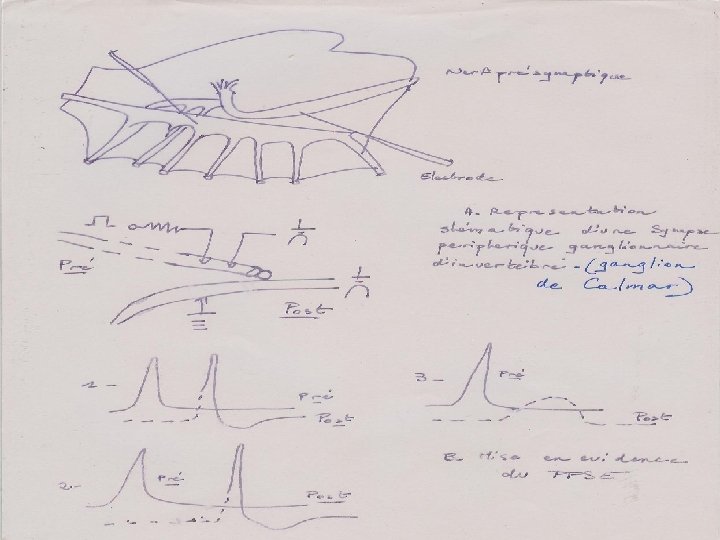 Nerf présynaptique
Electrode
A. Representation
shématique d'une Synapse
peripherique ganglionnaire
d'invertébré - (ganglion
de Calmar)
Pré
Post
1 -
Pré
Post
3 -
Pré
Post
2 -
Pré
Post
B. Mise en evidence
du PPSE